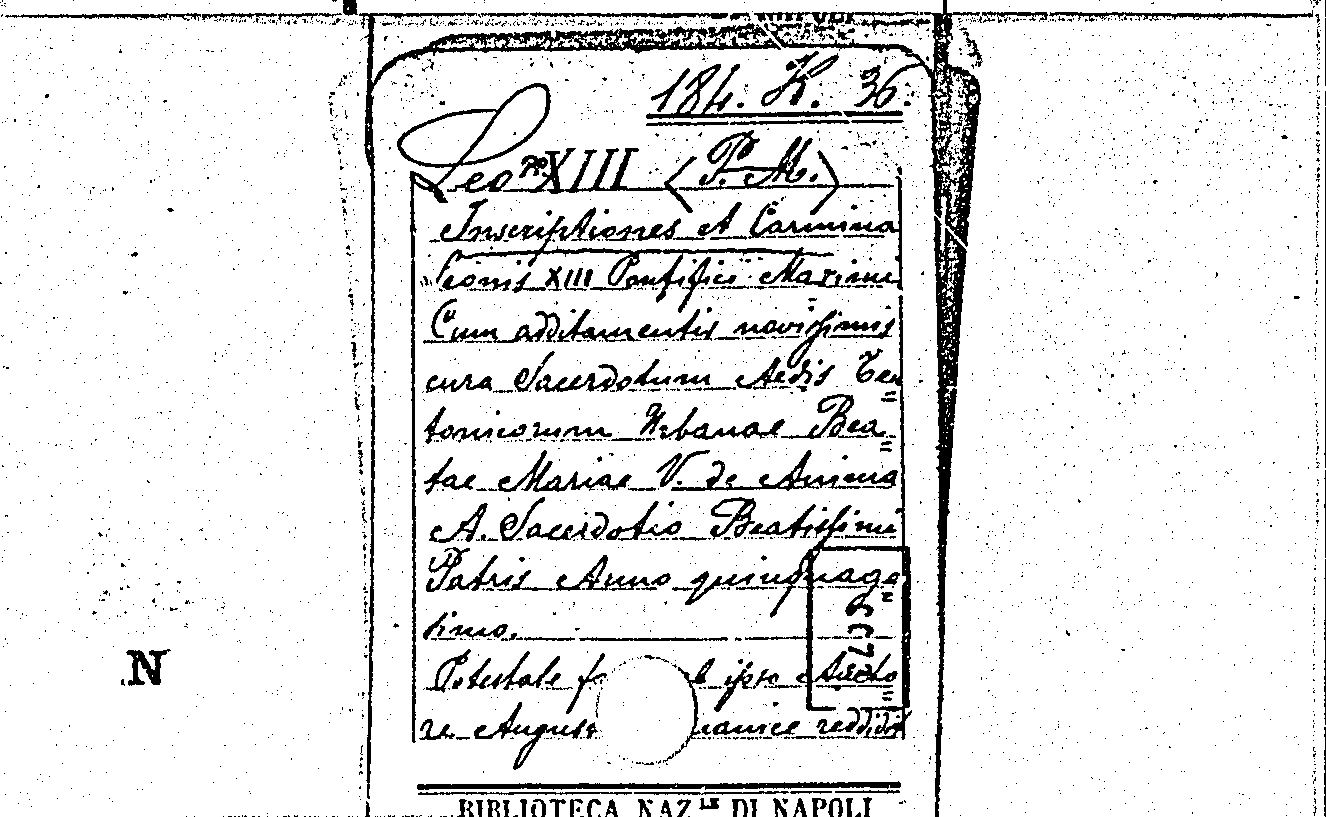 184. K. 36.
Leo PP XIII (P. M.)
Inscriptiones et Carmina
Leonis XIII Pontifici Maximi
Cum additamentis novissimis
cura Sacerdotum Aedis Teu=
tonicorum Urbanae Bea=
tae Mariae V. de Anima
A. Sacerdotio Beatissimi
Patris Anno quinquage=
simo.
Potestate ipso Aucto=
re reddidit
N
BIBLIOTECA NAZ.LE DI NAPOLI